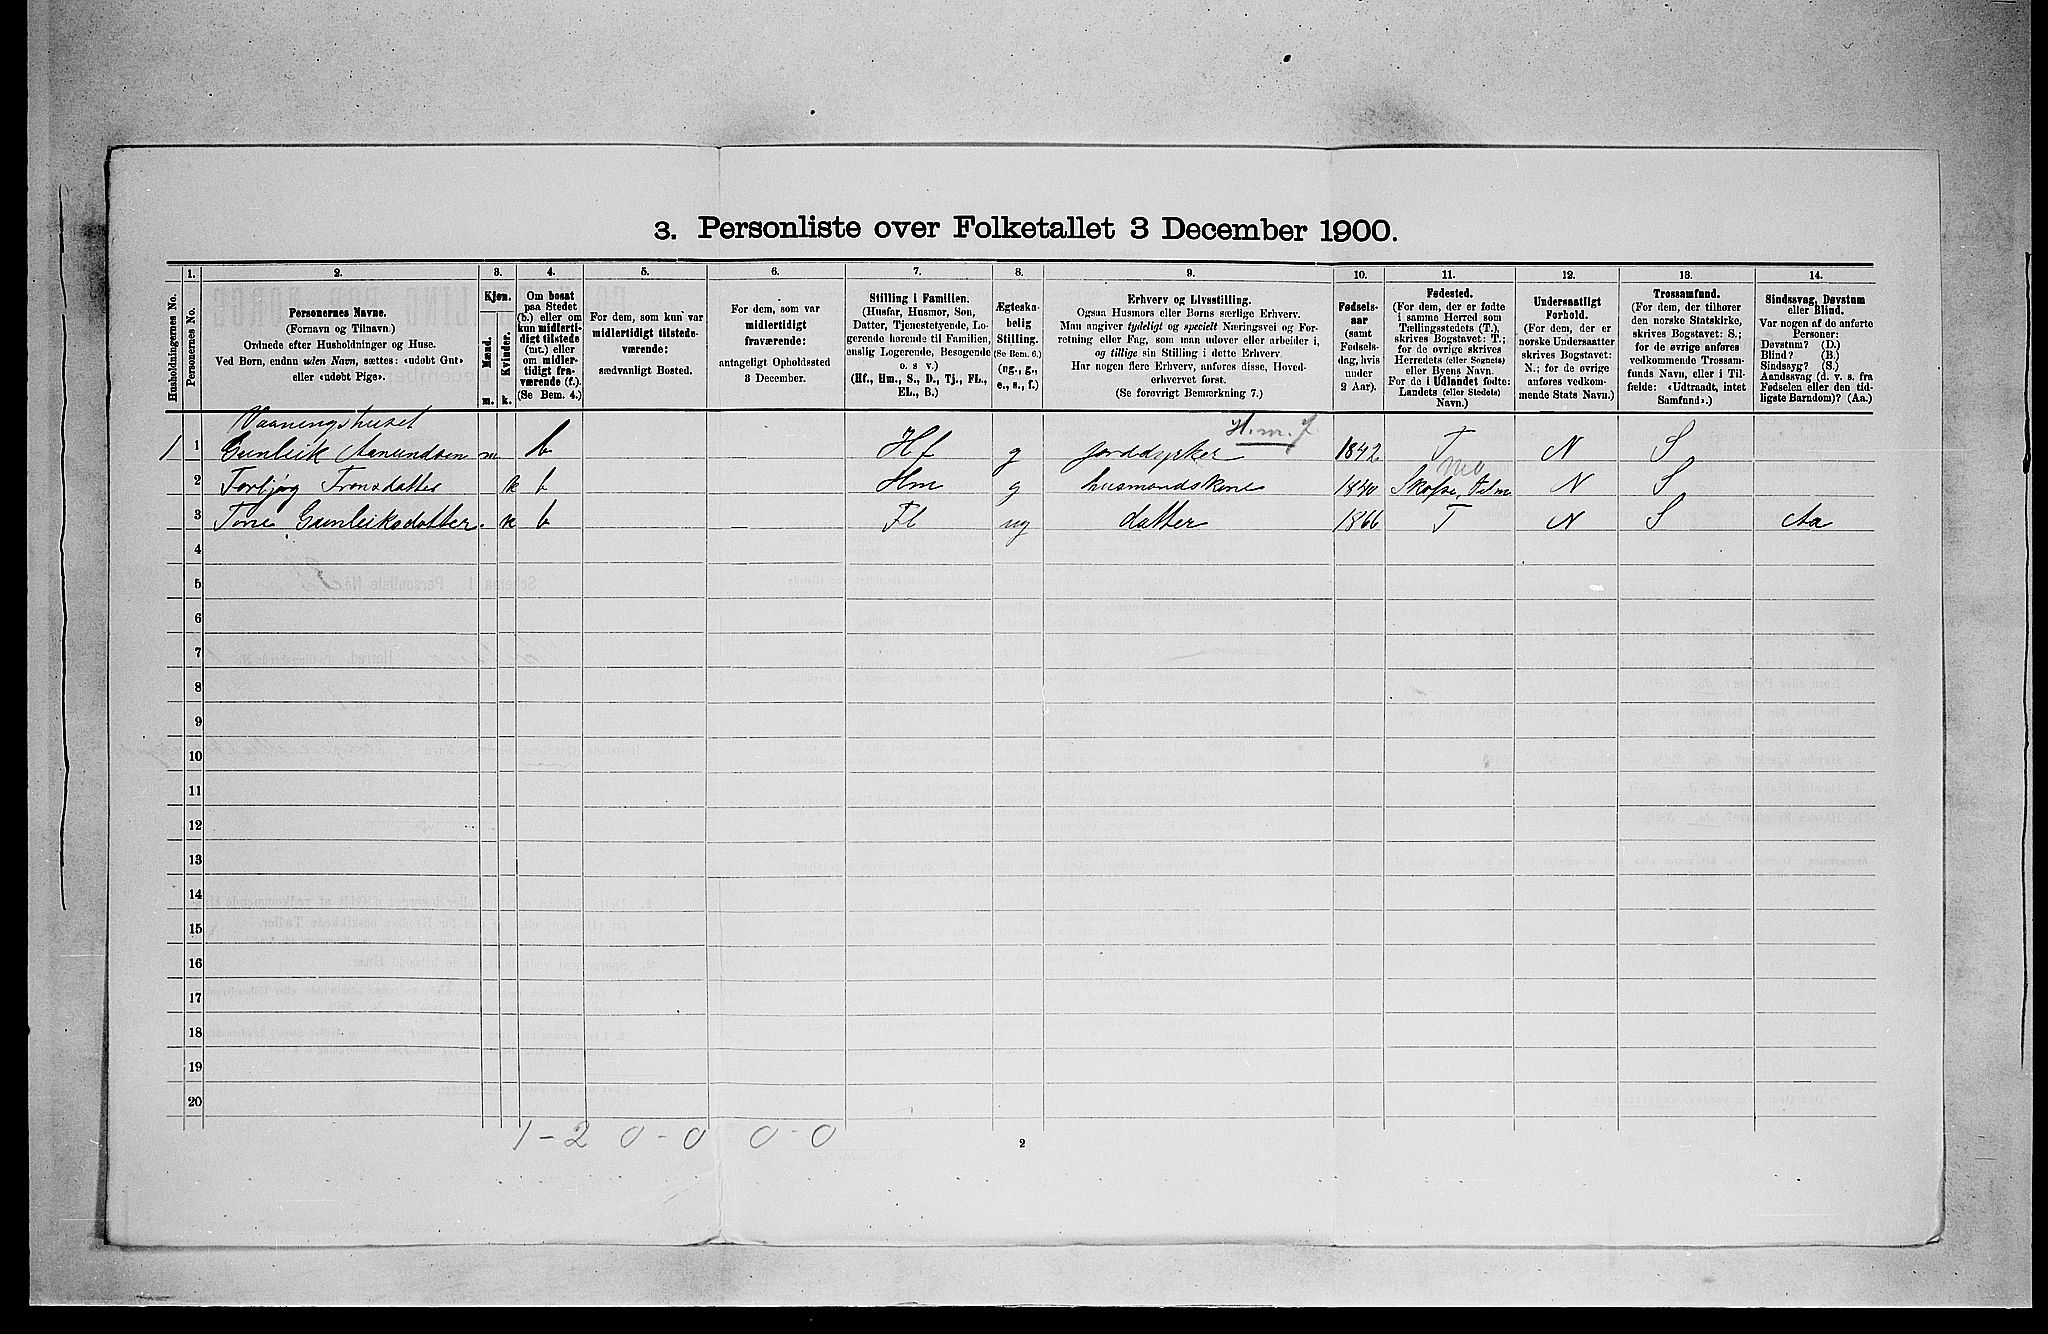 3. Personliste over Folketallet 3 December 1900.
Husholdningernes No.
1.
Personernes No.
2.
Personernes Navne.
(Fornavn og Tilnavn.)
Ordnede efter Husholdninger og Huse.
Ved Børn, endnu uden Navn, sættes: «udøbt Gut»
eller «udøbt Pige».
3.
Kjøn.
Mænd.
Kvinder.
m. k.
4.
Om bosat
paa Stedet
(b.) eller om
kun midlerti-
digt tilstede
(mt.) eller
om midler-
tidigt fra-
værende (f.).
(Se Bem. 4.)
5.
For dem, som kun var
midlertidigt tilstede-
værende:
sædvanligt Bosted.
6.
For dem, som var
midlertidigt
fraværende:
antageligt Opholdssted
3 December.
7.
Stilling i Familien.
(Husfar, Husmor, Søn,
Datter, Tjenestetyende, Lo-
gerende hørende til Familien,
enslig Logerende, Besøgende
o. s v.)
(Hf., Hm., S., D., Tj., FL.,
EL., B.)
8.
Ægteska-
belig
Stilling.
(Se Bem. 6.)
(ug., g.,
e., s., f.)
9.
Erhverv og Livsstilling.
Ogsaa Husmors eller Børns særlige Erhverv.
Man angiver tydeligt og specielt Næringsvei og For-
retning eller Fag, som man udøver eller arbeider i,
og tillige sin Stilling i dette Erhverv.
Har nogen flere Erhverv, anføres disse, Hoved-
erhvervet først.
(Se forøvrigt Bemærkning 7.)
10.
Fødsels-
aar
(samt
Fødsels-
dag, hvis
under
2 Aar).
11.
Fødested.
(For dem, der er fødte
i samme Herred som
Tællingsstedets (T.),
skrives Bogstavet: T.;
for de øvrige skrives
Herredets (eller Sognets)
eller Byens Navn.
For de i Udlandet fødte:
Landets (eller Stedets)
Navn.)
12.
Undersaatligt
Forhold.
(For dem, der er
norske Undersaatter
skrives Bogstavet:
N.; for de øvrige
anføres vedkom-
mende Stats Navn.)
13.
Trossamfund.
(For dem, der tilhører
den norske Statskirke,
skrives Bogstavet: S.;
for de øvrige anføres
vedkommende Trossam-
funds Navn, eller i Til-
fælde: «Udtraadt, intet
Samfund».)
14.
Sindssvag, Døvstum
eller Blind.
Var nogen af de anførte
Personer:
Døvstum? (D.)
Blind? (B.)
Sindssyg? (S.)
Aandssvag (d. v. s. fra
Fødselen eller den tid-
ligste Barndom)? (Aa.)
Vaaningshuset
1 1 Gunleik Aamundsen m b Hf g jorddyrker H.m.J. 1842 T N S
2 Torbjørg Tronsdatter k b Hm g husmandskone 1840 Skafse, Telm Mo N S
3 Tone Gunleiksdatter. k b Fl ug datter 1866 T N S Aa
4
5
6
7
8
9
10
11
12
13
14
15
16
17
18
19
20
1-2 0-0 0-0
2